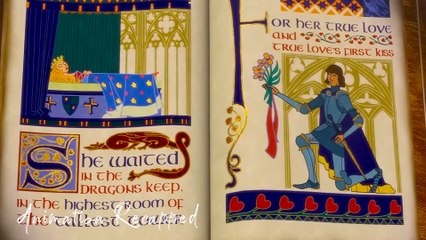 She waited
in the
dragons keep.
in the highest room of
the tallest tower
Animation Recapped
For her true love
and
true love's first kiss